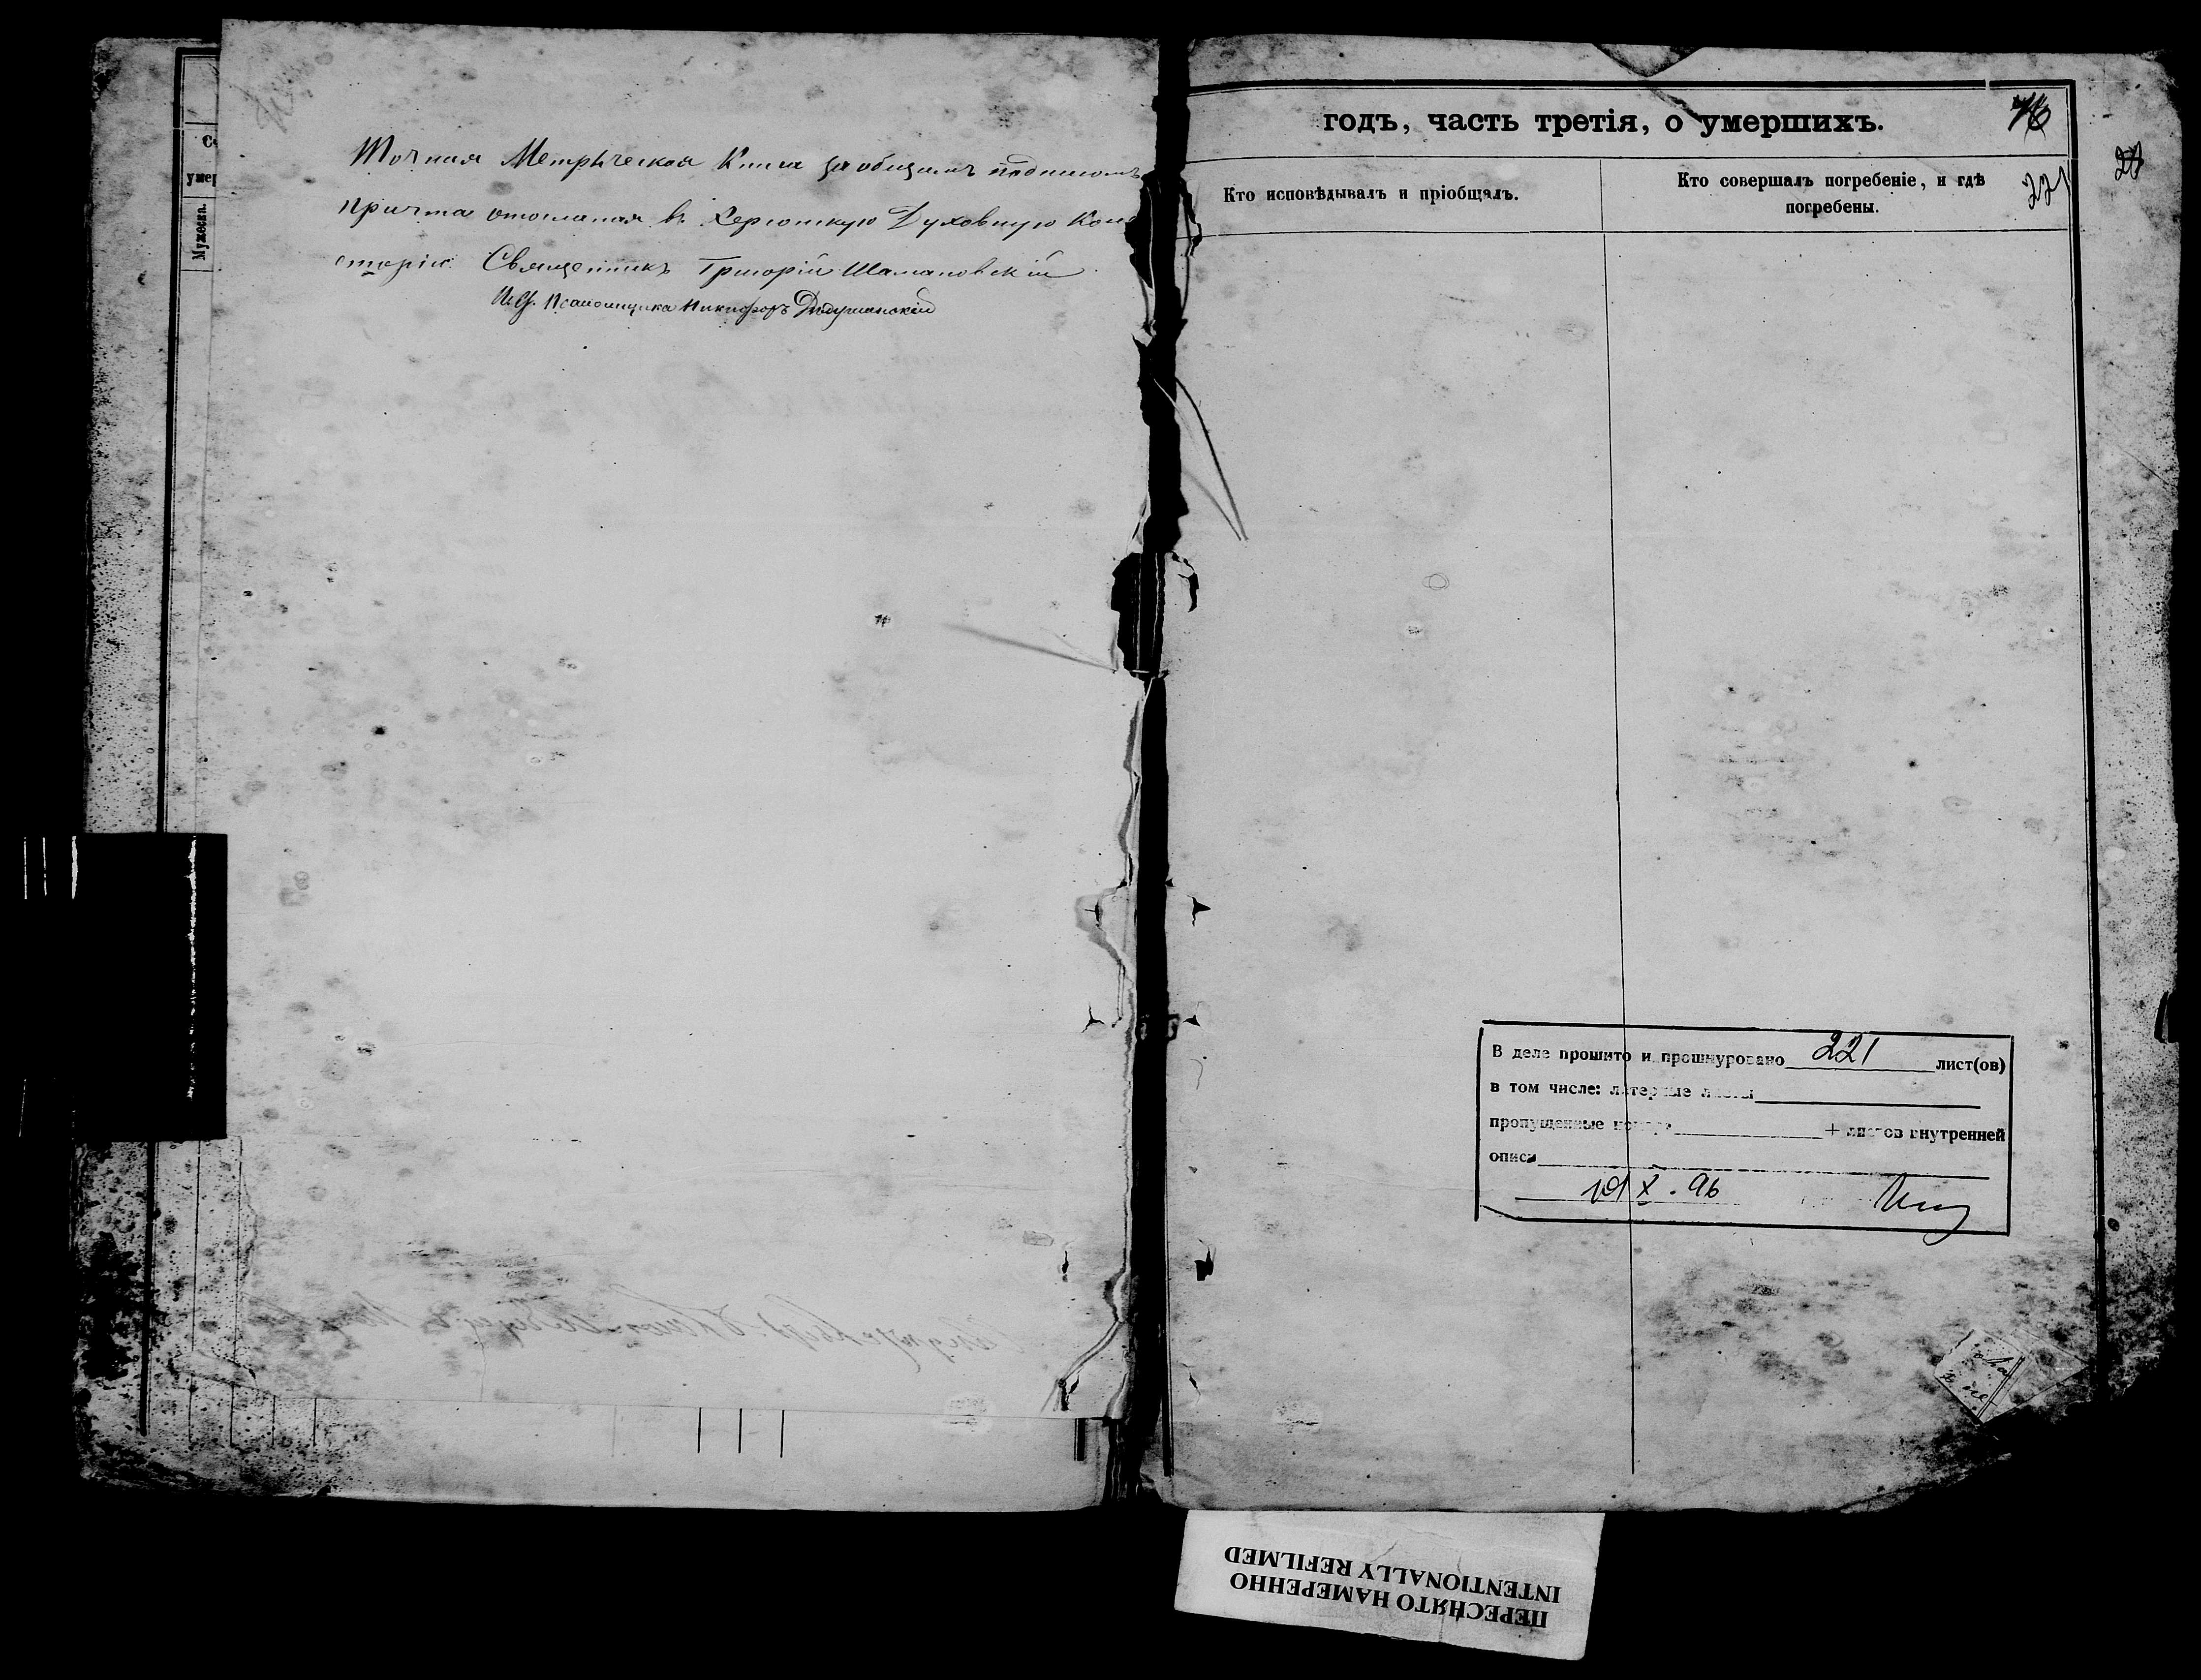 Точная Метрическая Книга за общимъ подписомъ
причта отослана въ Херсонскую Духовную Кон
сторію. Священникъ Григорій Шамановскій
И. д. Псаломщика Никифоръ
Мужеска.
годъ, часть третія, о умершихъ.
Кто исповѣдывалъ и пріобщалъ.
Кто совершалъ погребеніе, и гдѣ
погребены.
221
В деле прошито и прошнуровано 221 лист(ов)
в том числе: литерные листы
пропущенные номера + листов внутренней
описи
X. 96
ПЕРЕСНЯТО НАМЕРЕННО
INTENTIONALLY REFILMED